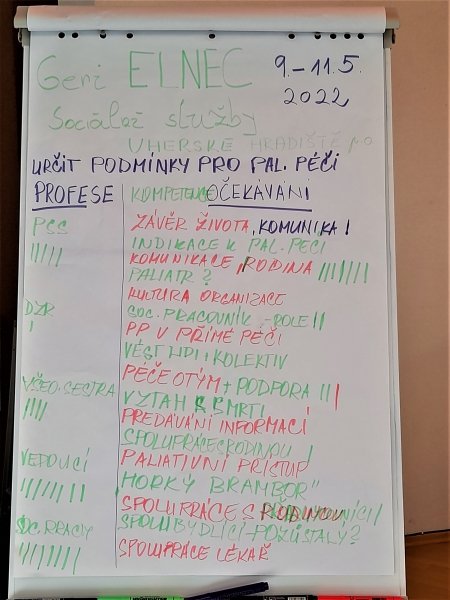 Geri ELNEC 9.-11.5.
2022
Sociálně služby
UHERSKÉ HRADIŠTĚ p.o
URČIT PODMÍNKY PRO PAL. PÉČI
PROFESE KOMPETENCE OČEKÁVÁNÍ
PSS ZÁVĚR ŽIVOTA, KOMUNIKA I
INDIKACE K PAL. PÉČI
KOMUNIKACE, RODINA
PALIATR?
KULTURA ORGANIZACE
SOC. PRACOVNÍK - ROLE II
PP V PŘÍMÉ PÉČI
VÉST LIDI + KOLEKTIV
PÉČE O TÝM + PODPORA III
VŠEO. SESTRA VZTAH K SMRTI
PŘEDÁVÁNÍ INFORMACÍ
SPOLUPRÁCE S RODINOU
VEDOUCÍ PALIATIVNÍ PŘÍSTUP
HORKÝ BRAMBOR"
SPOLUPRÁCE S RODINOU
SPOLUBYDLÍCÍ - POZŮSTALÝ?
SPOLUPRÁCE LÉKAŘ